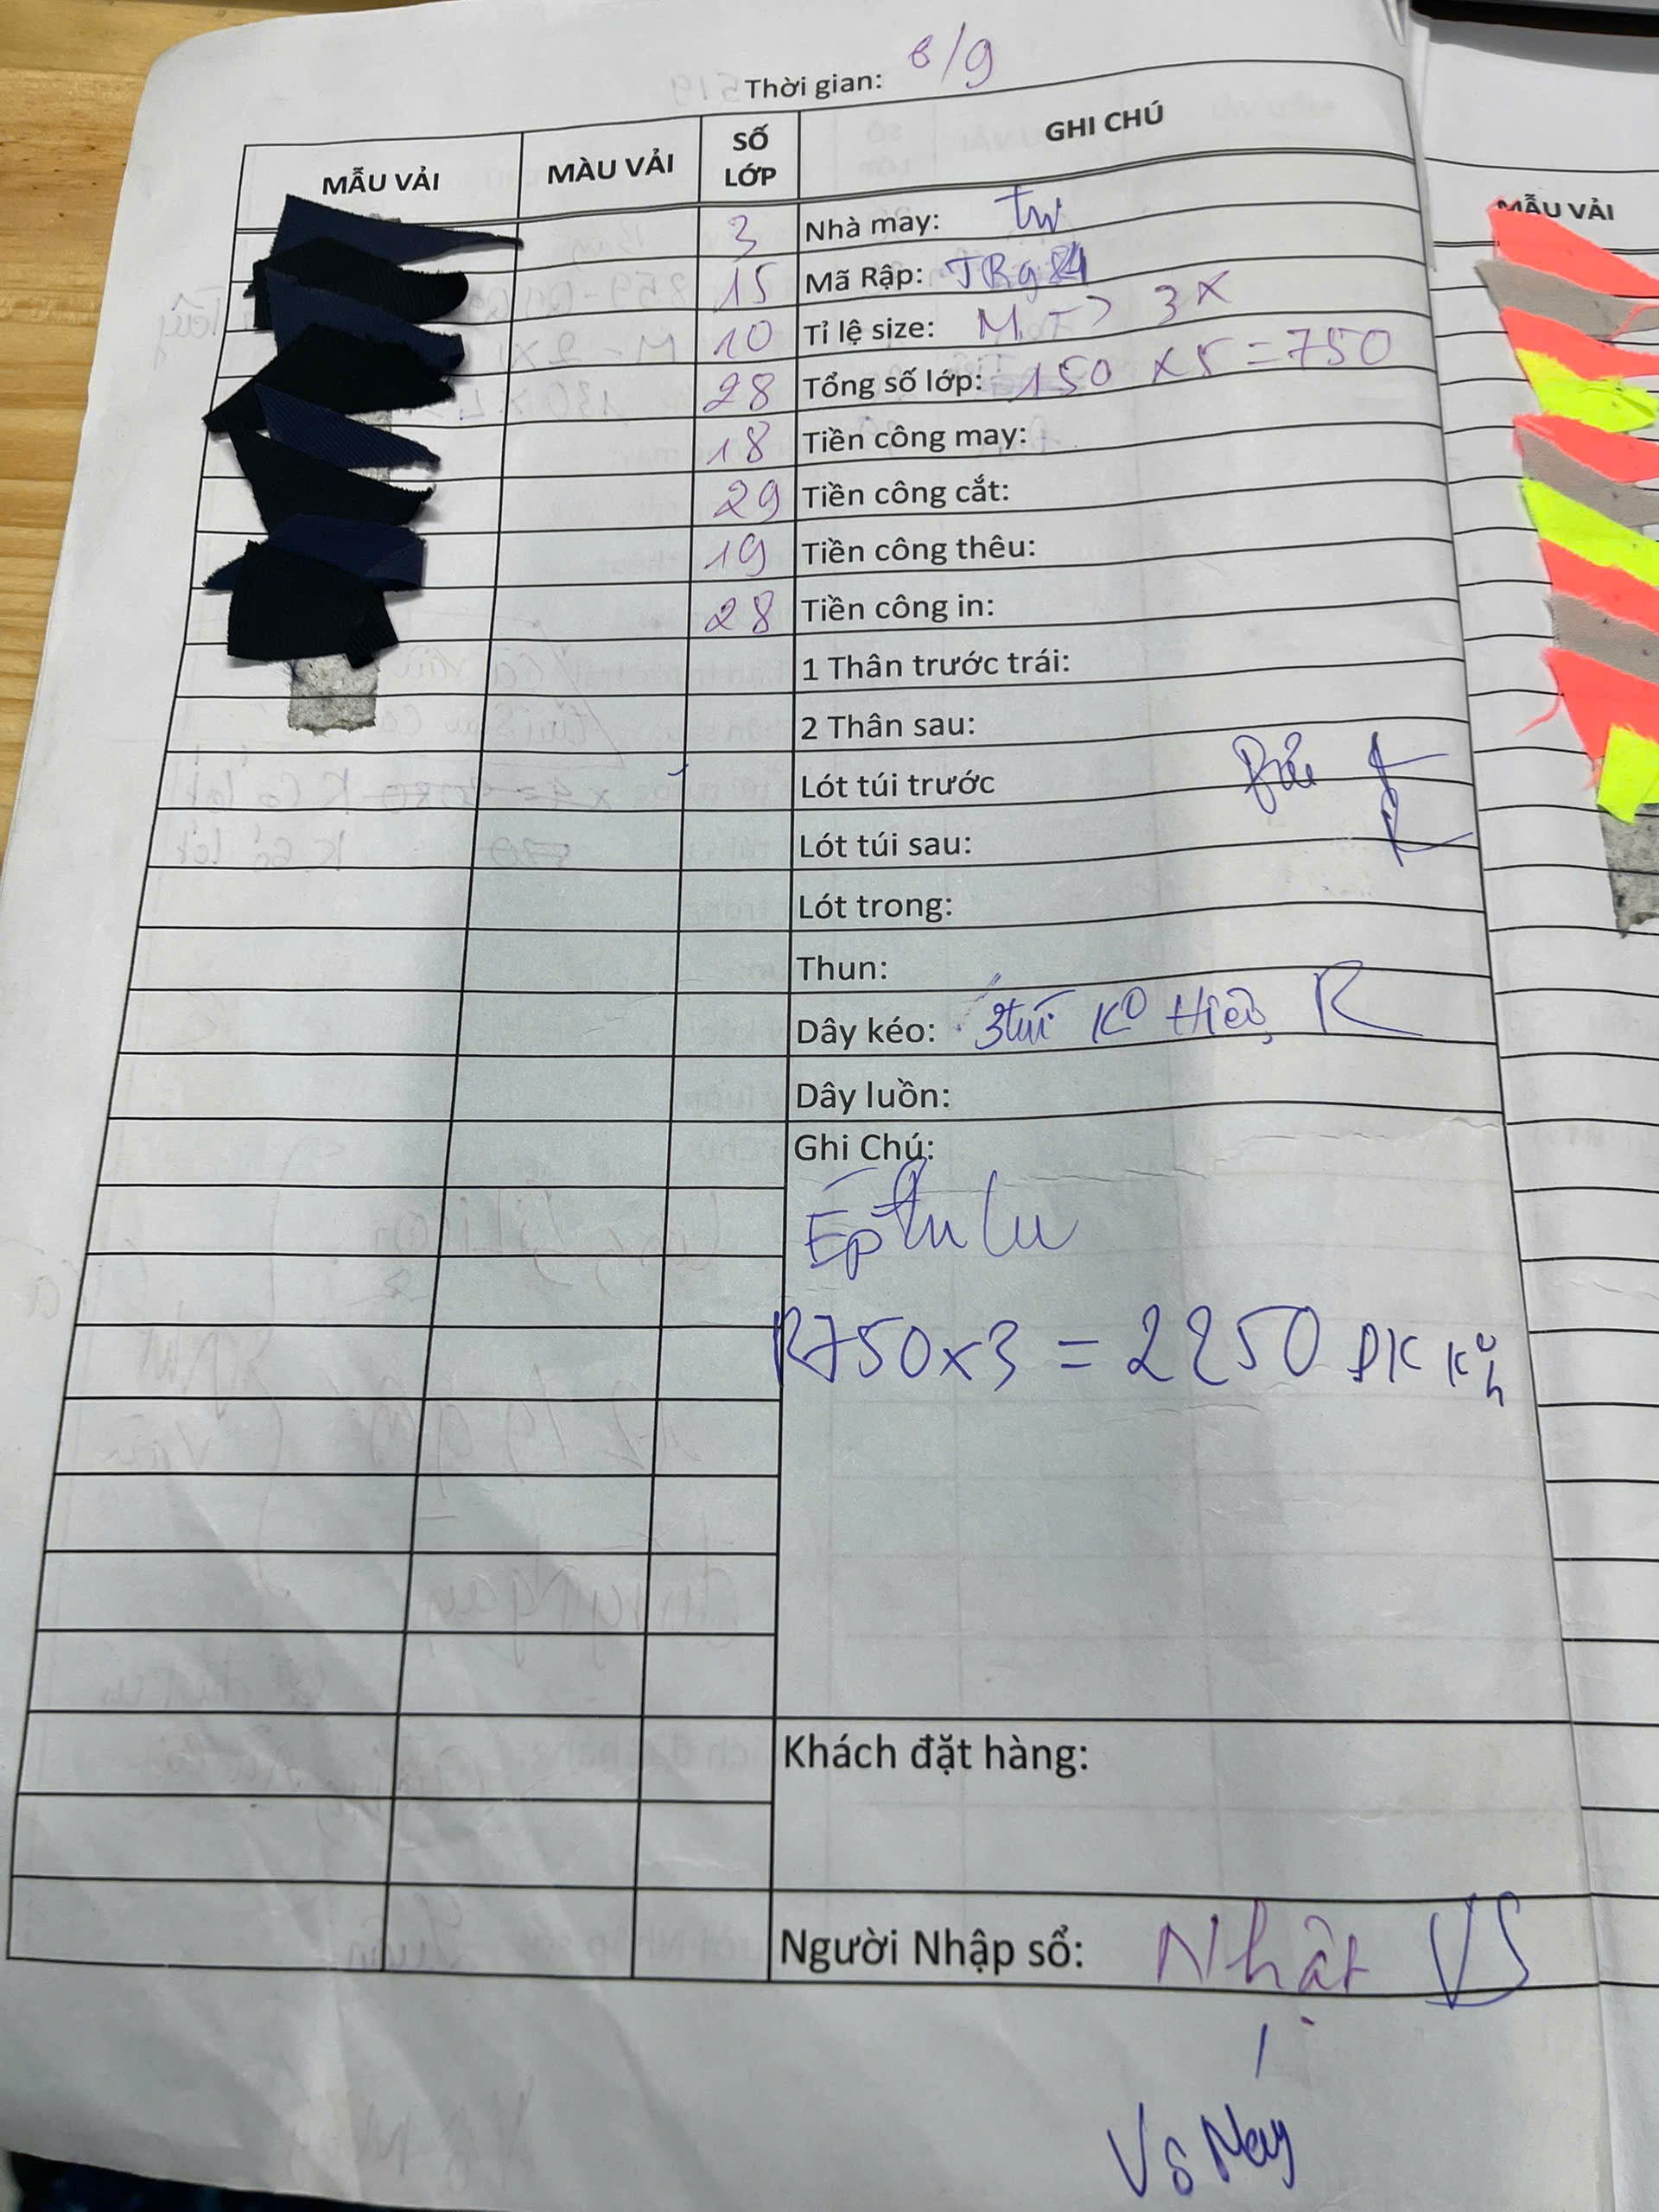 Thời gian: 6/9
MẪU VẢI MÀU VẢI SỐ LỚP GHI CHÚ
3 Nhà may: Tư
15 Mã Rập: JR984
10 Tỉ lệ size: M -> 3X
28 Tổng số lớp: 150 x 5 = 750
18 Tiền công may:
29 Tiền công cắt:
19 Tiền công thêu:
28 Tiền công in:
1 Thân trước trái:
2 Thân sau:
Lót túi trước
Lót túi sau:
Lót trong:
Thun:
Dây kéo: 3 túi K° Hiệu R
Dây luồn:
Ghi Chú:
Ép
R750x3 = 2250 DK
Khách đặt hàng:
Người Nhập sổ: Nhật VS
VS May
MẪU VẢI